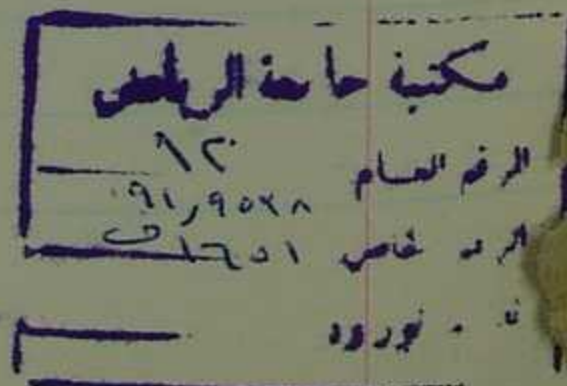 مكتبة جامعة الرياض
الرقم العام ٦٢
٩١٫٩٥٣٨
الرقم خاص ١٦٥١ ف
ورود